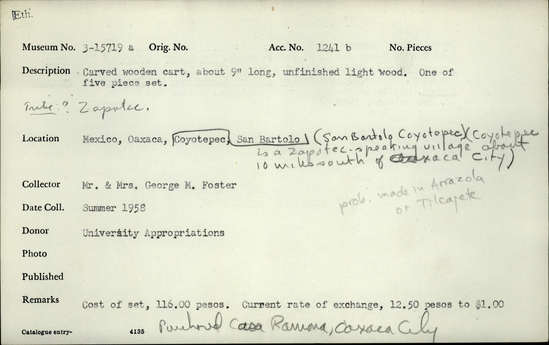 Eth.
Museum No. 3-15719 a Orig. No. Acc. No. 1241 b No. Pieces
Description Carved wooden cart, about 9" long, unfinished light wood. One of
five piece set.
Tribe? Zapotec.
Location Mexico, Oaxaca, Coyotepec, San Bartolo (San Bartolo Coyotopec) (Coyotepec
is a Zapotec-speaking village about
10 miles south of Oaxaca City)
Collector Mr. & Mrs. George M. Foster
prob. made in Arrazola
or Tilcajete
Date Coll. Summer 1958
Donor University Appropriations
Photo
Published
Remarks Cost of set, 116.00 pesos. Current rate of exchange, 12.50 pesos to $1.00
Catalogue entry- 4135 Purchased Casa Ramona, Oaxaca City